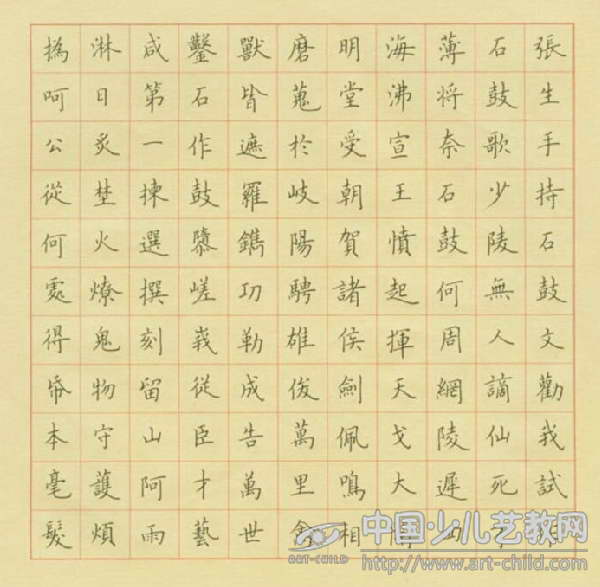 張生手持石鼓文勸我試
石鼓歌少陵無人謫仙死
薄將奈石鼓何周網陵遲四
海沸宣王憤起揮天戈大
明堂受朝賀諸侯劍佩鳴相
磨蒐於岐陽騁雄俊萬里禽
獸皆遮羅鐫功勒成告萬世
鑿石作鼓隳嵯峩從臣才藝
咸第一揀選撰刻留山阿雨
淋日炙埜火燎鬼物守護煩
撝呵公從何處得帋本毫髮
中国少儿艺教网
ART-CHILD
http://www.art-child.com